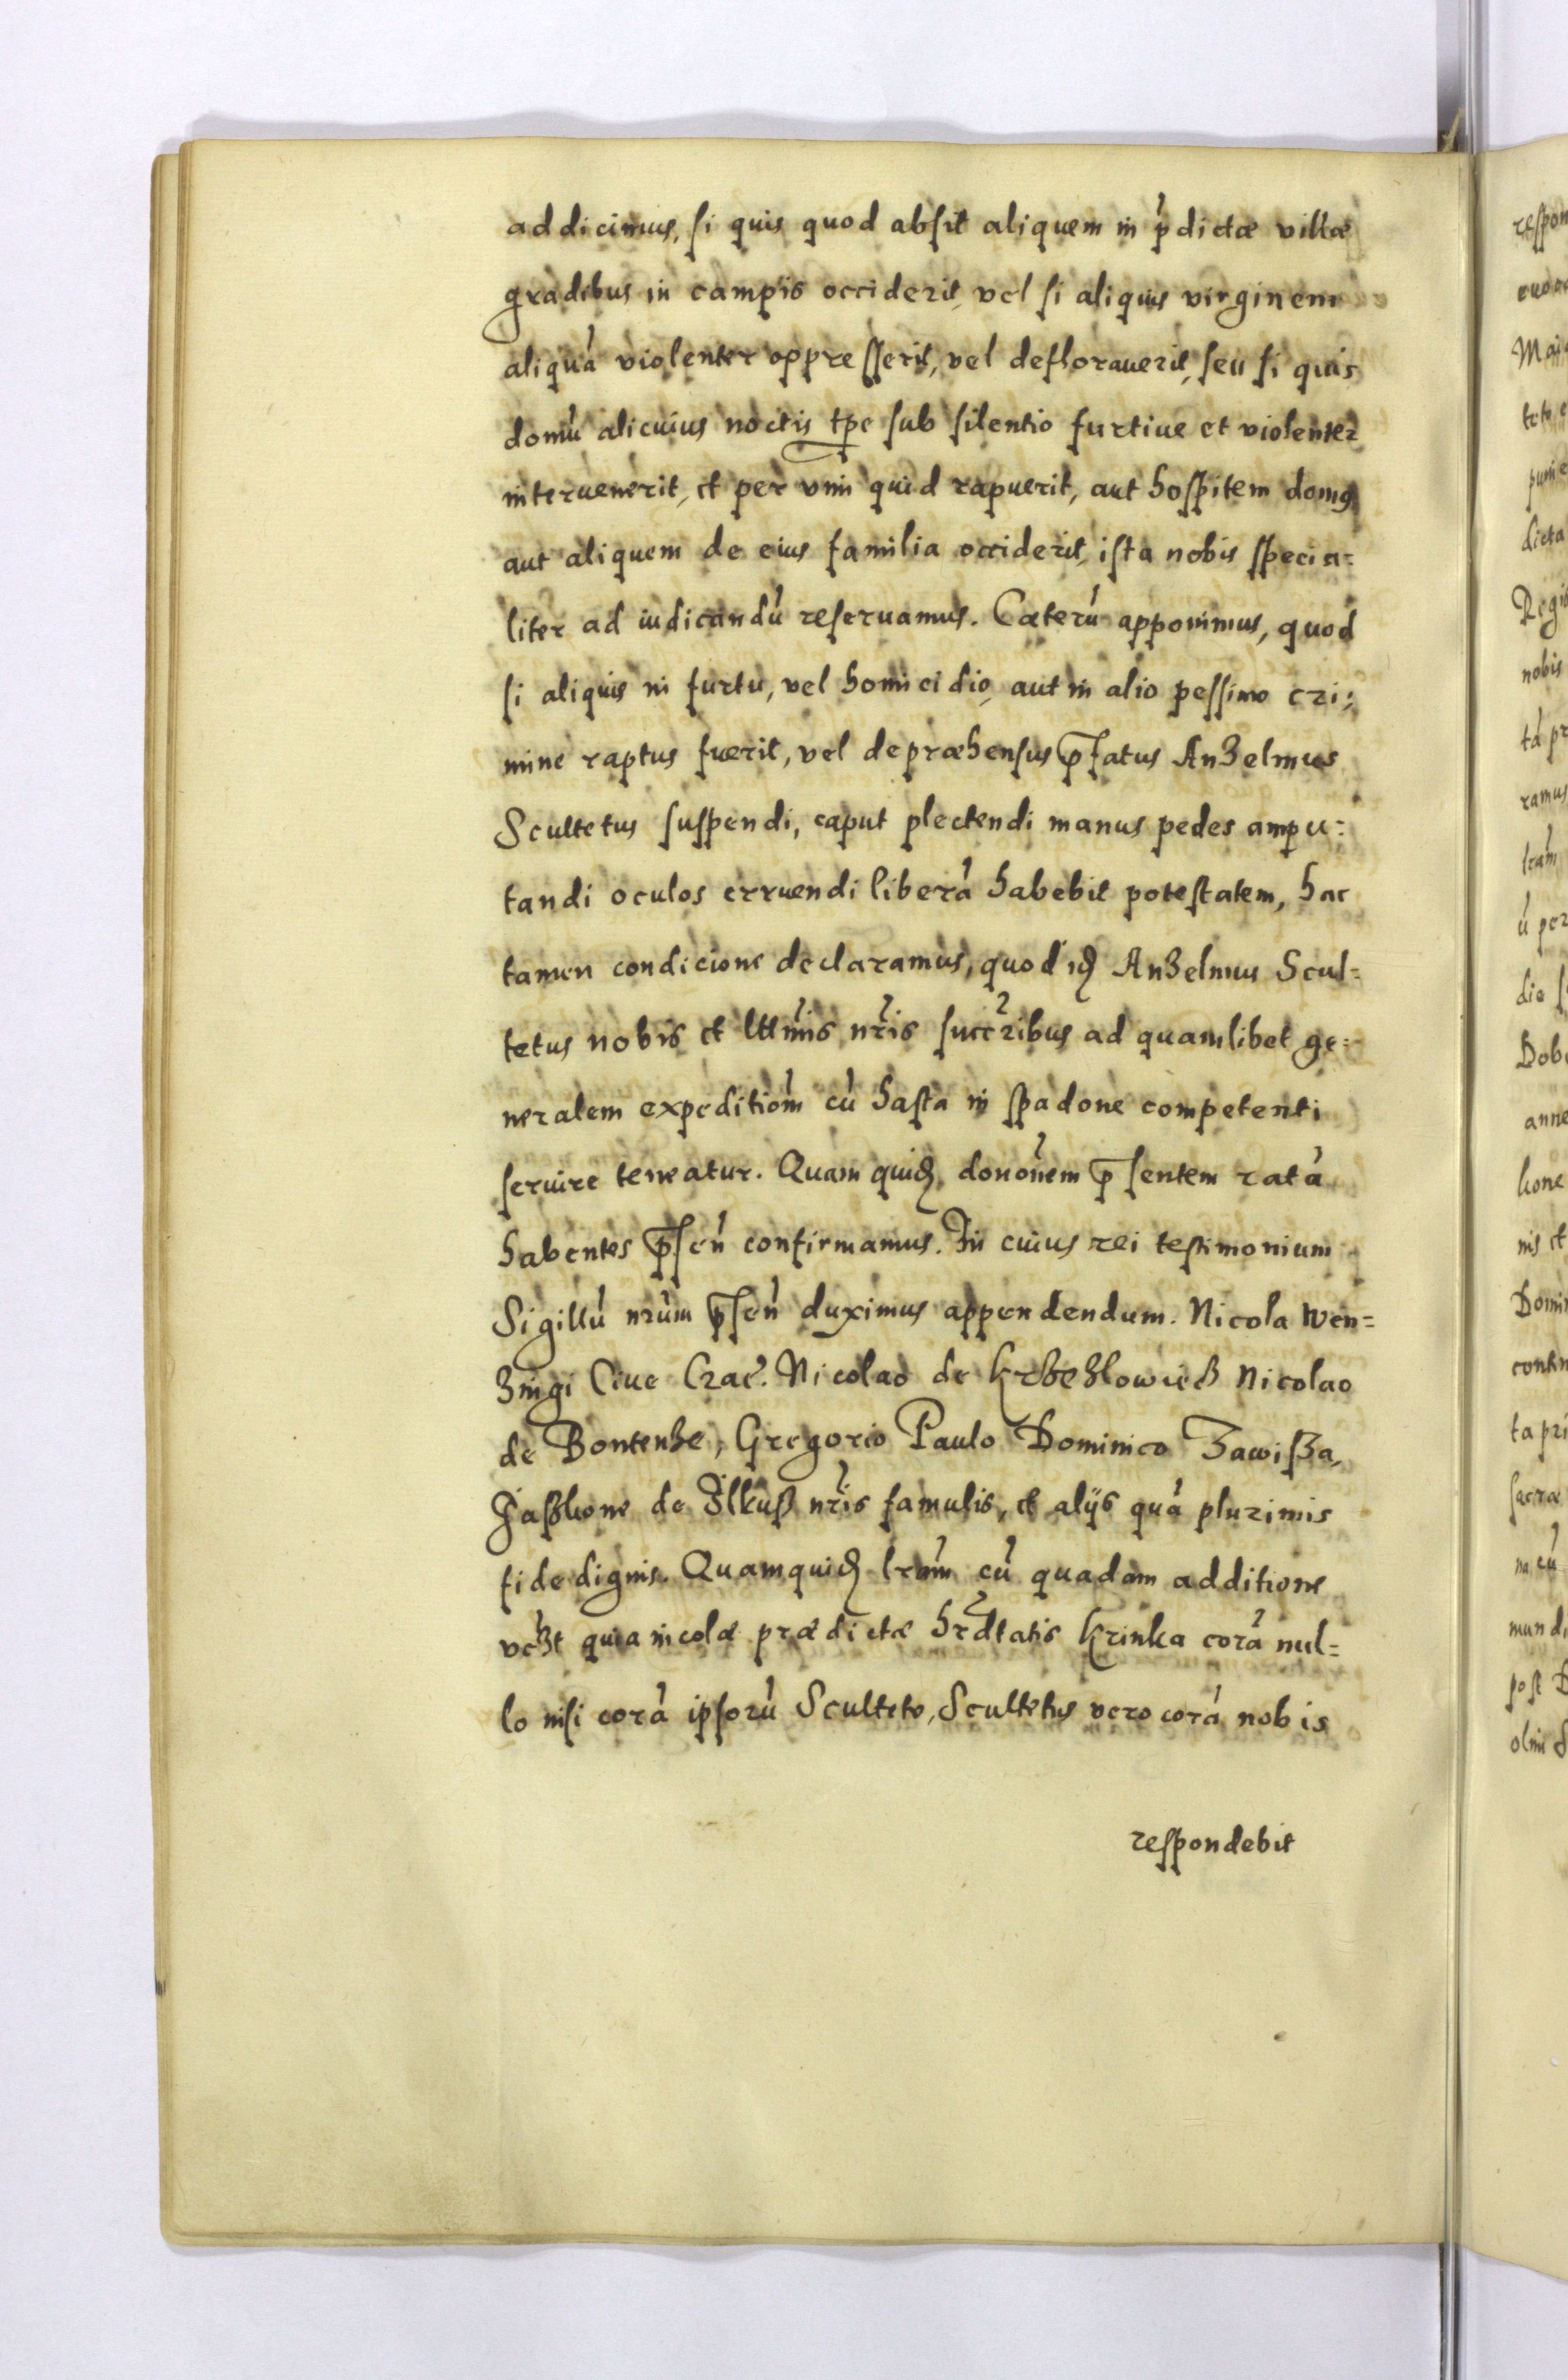 addicimus, si quis quod absit aliquem in p̃dictæ villæ
gradibus in campis occiderit, vel si aliquis virginem
aliquã violenter oppresserit, vel deflorauerit, seu si quis
domũ alicuius noctis tpe sub silentio furtiue et violenter
interuenerit, et per vim quid rapuerit, aut hospitem domus
aut aliquem de eius familia occiderit, ista nobis specia=
liter ad iudicandũ reseruamus. Cæterũ apponimus, quod
si aliquis in furtu, vel homicidio, aut in alio pessimo cri=
mine raptus fuerit, vel depræhensus p̃fatus Anzelmus
Scultetus suspendi, caput plectendi manus pedes ampu=
tandi oculos erruendi liberã habebit potestatem, hac
tamen condicione declaramus, quod idẽ Anzelmus Scul=
tetus nobis et lttimis nr̃is succr̃ibus ad quamlibet ge=
neralem expeditiom̃ cũ hasta in spadone competenti
seruire teneatur. Quam quidẽ donoñem p̃sentem ratã
habentes p̃señ confirmamus. In cuius rei testimonium
Sigillũ nrũm p̃señ duximus appendendum. Nicola Wen=
zingi Ciue Crac̃. Nicolao de Krzezlowicz Nicolao
de Bontenze, Gregorio Paulo Dominico Zawisza,
Jaszkone de Ilkusz nr̃is famulis, et alijs quã plurimis
fide dignis. Quamquidẽ lrãm cũ quadam additione
vczt quia incolæ prædictæ hr̃dtatis Krinka corã nul=
lo nisi corã ipsorũ Sculteto, Scultetus vero corã nobis
respondebit